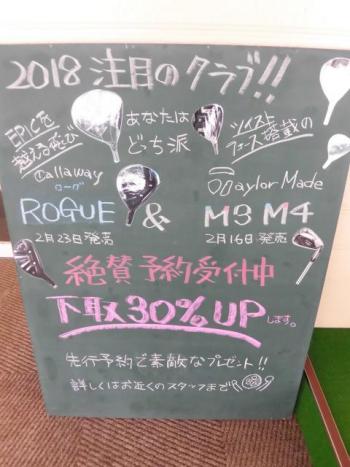 2018 注目のクラブ!!
EPICを
超える飛び
あなたは
どっち派
ツイスト
フェース搭載の
Callaway
ローグ
TaylorMade
ROGUE & M3 M4
2月23日発売
2月16日発売
絶賛予約受付中
下取30%UPします。
先行予約で素敵なプレゼント!!
詳しくはお近くのスタッフまで